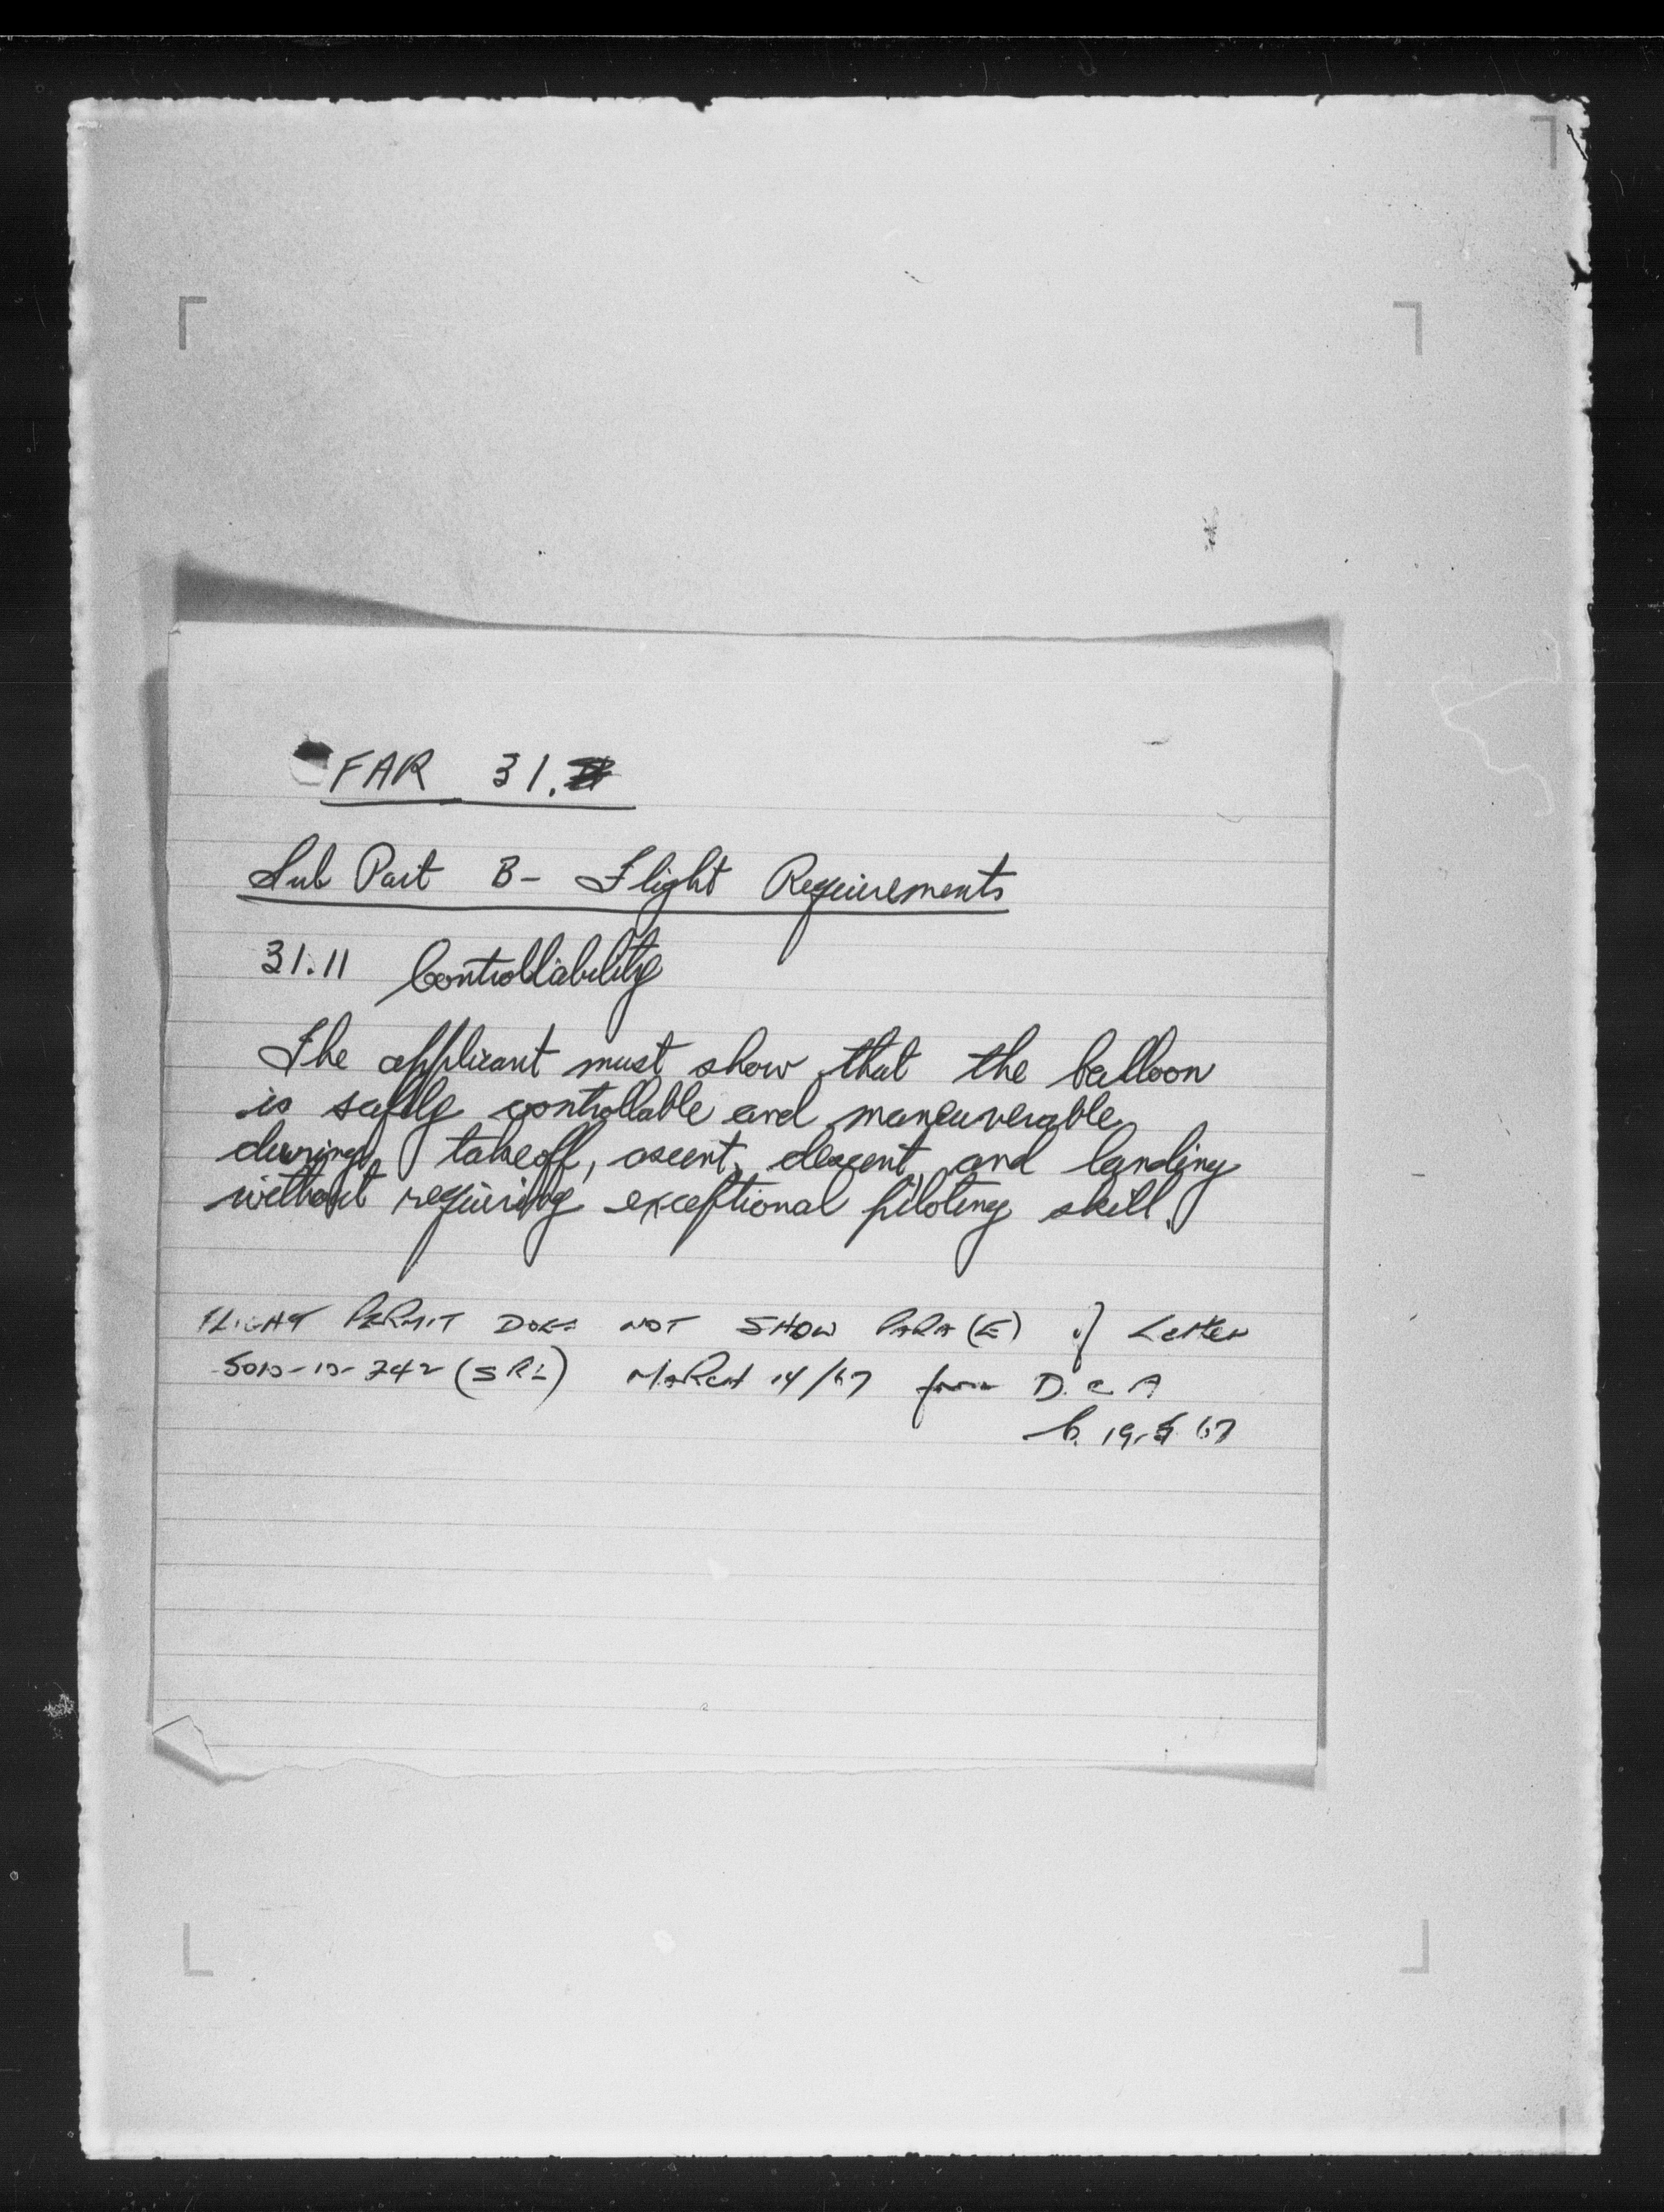 FAR 31.
Sub Part B- Flight Requirements
31.11 Controllability
The applicant must show that the balloon
is safely controllable and maneuverable
during takeoff, ascent, descent, and landing
without requiring exceptional piloting skill.
FLIGHT PERMIT DOES NOT SHOW PARA (E) of Letter
5010-10-242 (SRL) MARCH 14/67 from D.C A
19.5 67